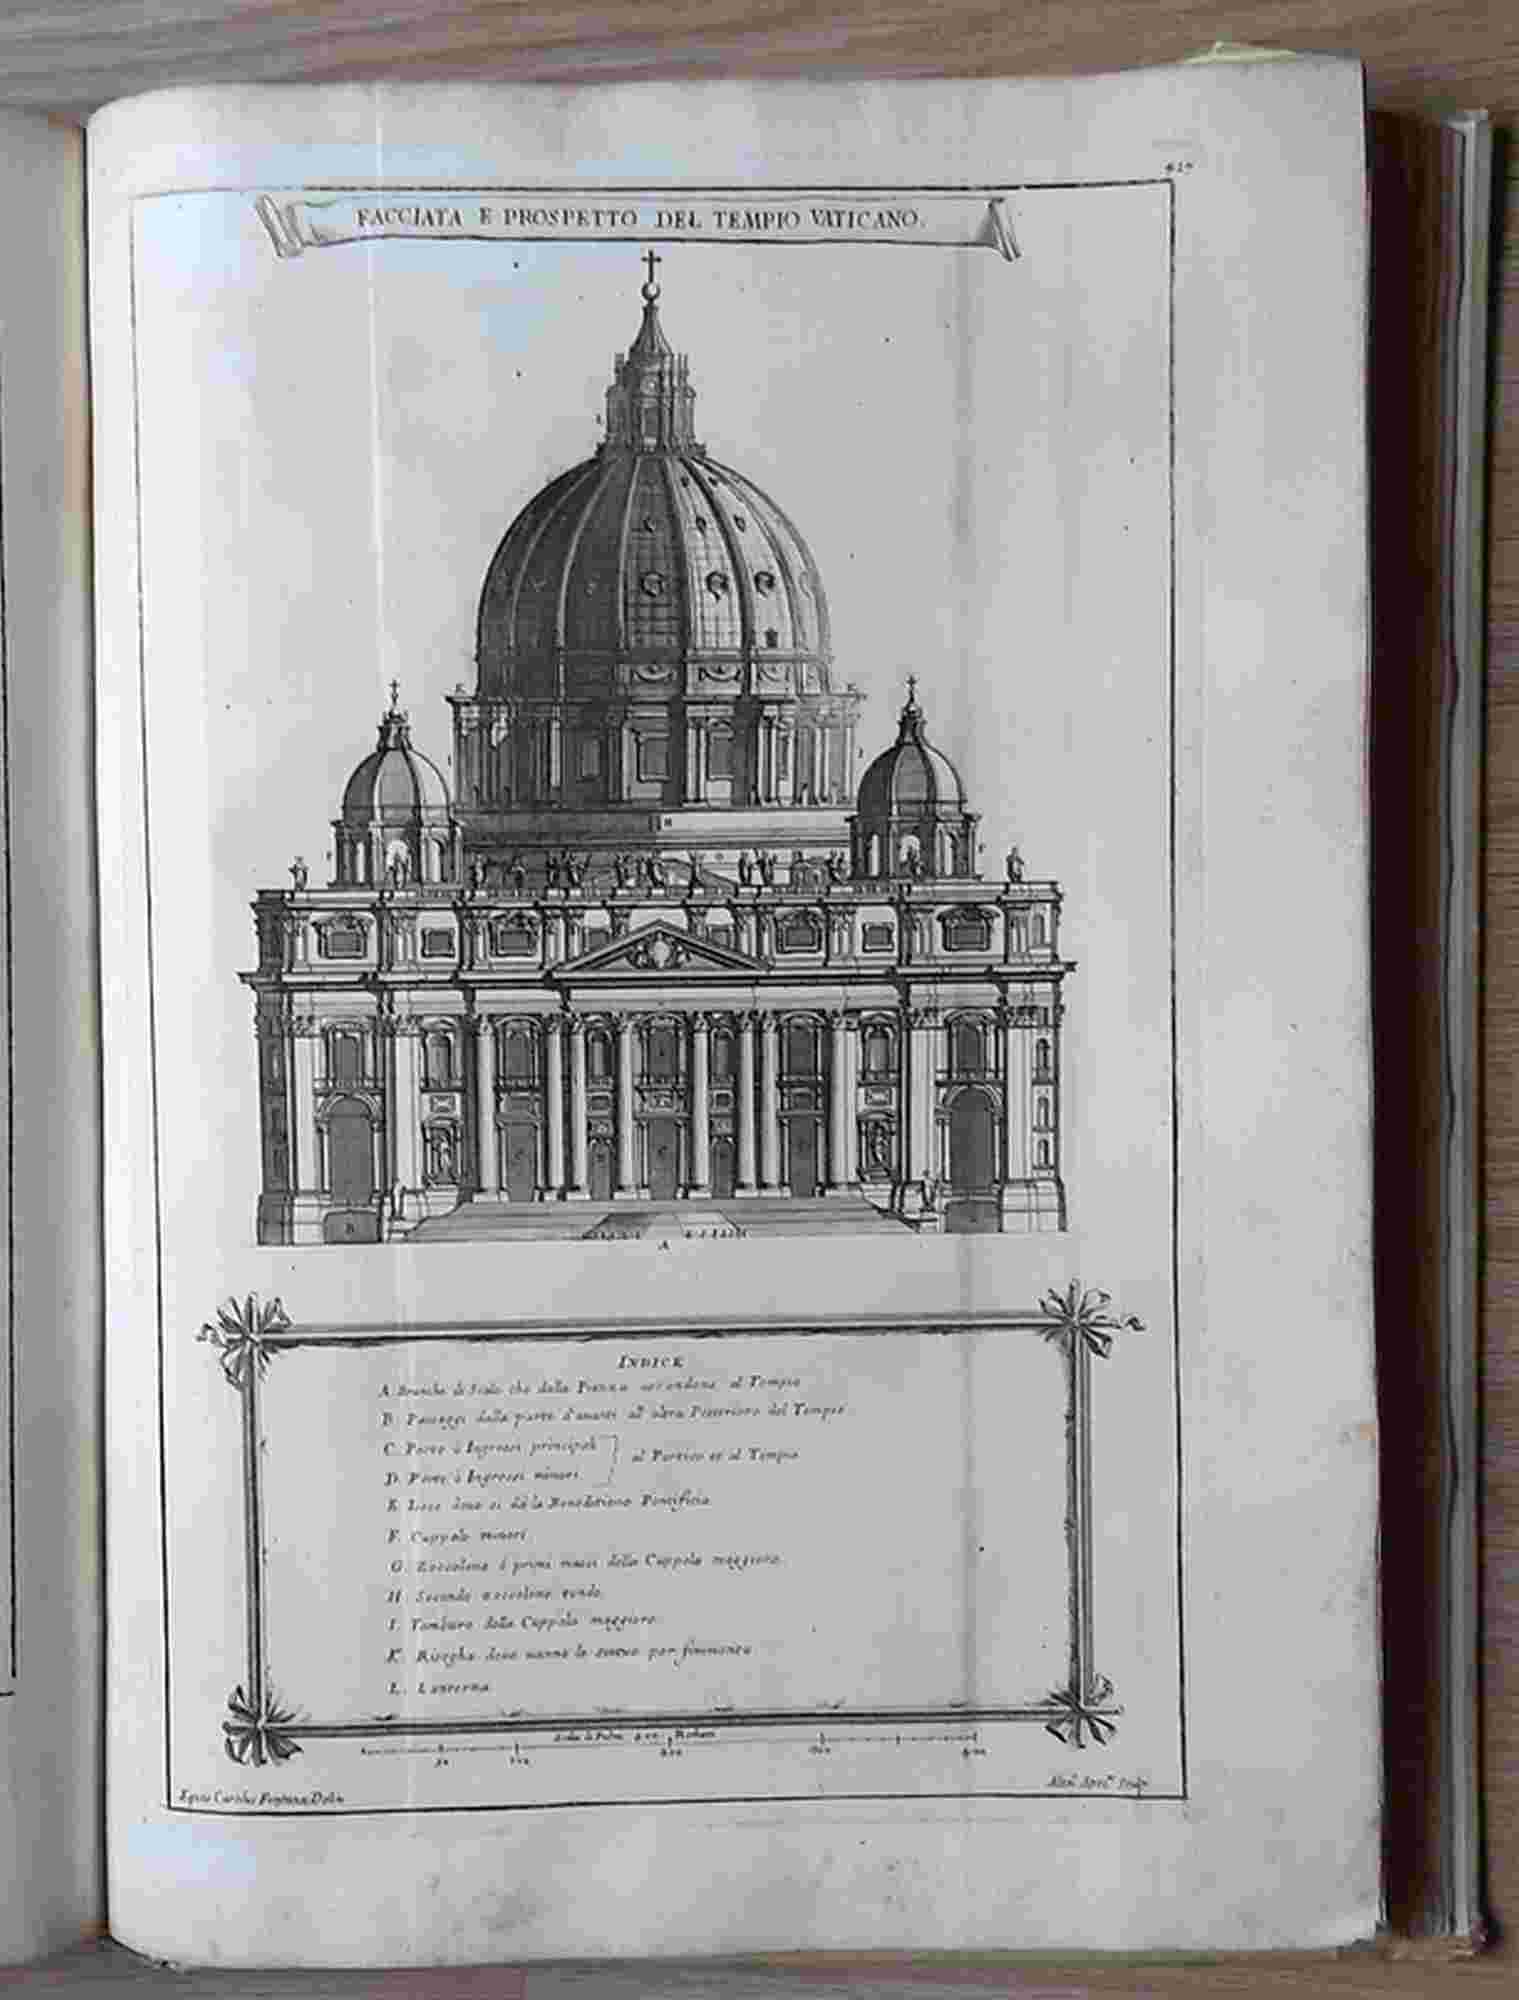 FACCIATA E PROSPETTO DEL TEMPIO VATICANO.
INDICE
A. Branche di Scale che dalla Piazza ascendono al Tempio
B. Passaggi dalla parte d'auanti all' altra Posteriore del Tempio
C. Porte ò Ingressi principali
al Portico et al Tempio
D. Porte ò Ingressi minori
E. Loco doue si dà la Beneditione Pontificia
F. Cuppole minori
G. Zoccolone è primi massi della Cuppola maggiore
H. Secondo zoccolone tondo
I. Tamburo della Cuppola maggiore
K. Riseghe doue uanno le statue per finimento
L. Lanterna
Scala di Palmi 400 Romani
50 100 200 300 400
Eques Carolus Fontana Delin
Alexr. Specs. Sculp